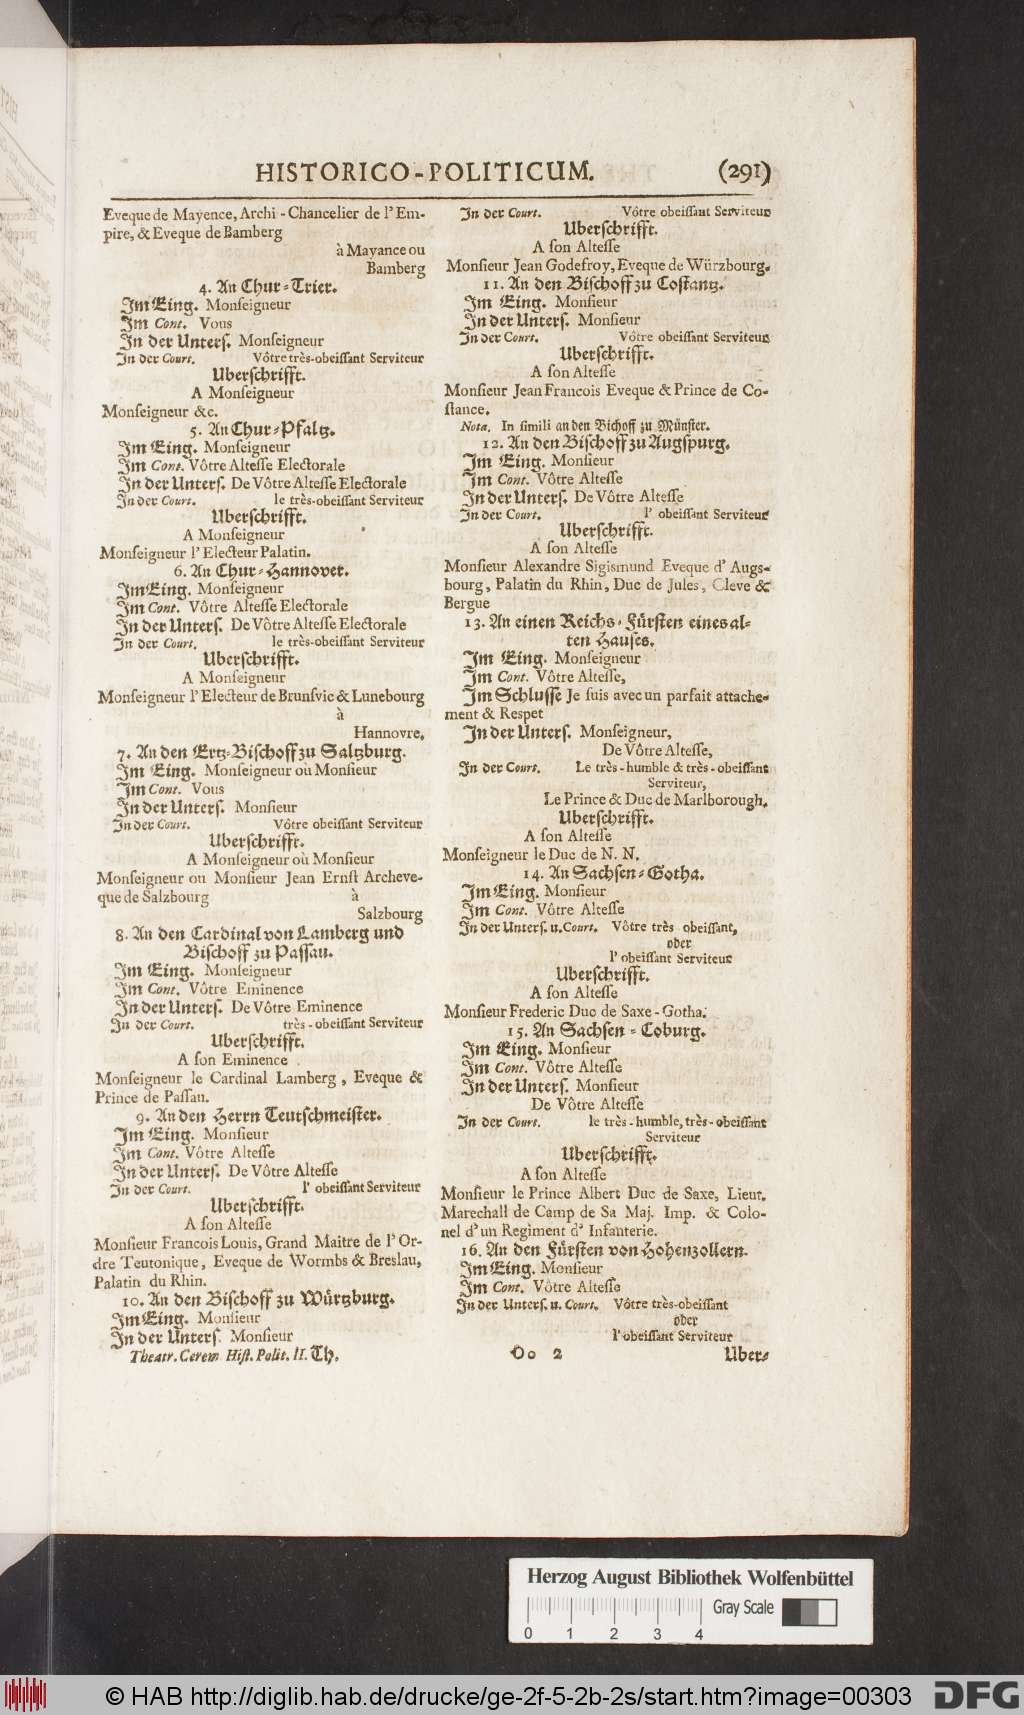 HISTORICO-POLITICUM. (291)
Eveque de Mayence, Archi-Chancelier de l'Em-
pire, & Eveque de Bamberg
à Mayance ou
Bamberg
4. An Chur-Trier.
Im Eing. Monseigneur
Im Cont. Vous
In der Unters. Monseigneur
In der Court. Vôtre très-obeissant Serviteur
Uberschrifft.
A Monseigneur
Monseigneur &c.
5. An Chur-Pfaltz.
Im Eing. Monseigneur
Im Cont. Vôtre Altesse Electorale
In der Unters. De Vôtre Altesse Electorale
In der Court. le très-obeissant Serviteur
Uberschrifft.
A Monseigneur
Monseigneur l'Electeur Palatin.
6. An Chur-Hannover.
Im Eing. Monseigneur
Im Cont. Vôtre Altesse Electorale
In der Unters. De Vôtre Altesse Electorale
In der Court. le très-obeissant Serviteur
Uberschrifft.
A Monseigneur
Monseigneur l'Electeur de Brunsvic & Lunebourg
à
Hannovre.
7. An den Ertz-Bischoff zu Saltzburg.
Im Eing. Monseigneur où Monsieur
Im Cont. Vous
In der Unters. Monsieur
In der Court. Vôtre obeissant Serviteur
Uberschrifft.
A Monseigneur où Monsieur
Monseigneur ou Monsieur Jean Ernst Archeve-
que de Salzbourg à
Salzbourg
8. An den Cardinal von Lamberg und
Bischoff zu Passau.
Im Eing. Monseigneur
Im Cont. Vôtre Eminence
In der Unters. De Vôtre Eminence
In der Court. très-obeissant Serviteur
Uberschrifft.
A son Eminence
Monseigneur le Cardinal Lamberg, Eveque &
Prince de Passau.
9. An den Herrn Teutschmeister.
Im Eing. Monsieur
Im Cont. Vôtre Altesse
In der Unters. De Vôtre Altesse
In der Court. l'obeissant Serviteur
Uberschrifft.
A son Altesse
Monsieur Francois Louis, Grand Maitre de l'Or-
dre Teutonique, Eveque de Wormbs & Breslau,
Palatin du Rhin.
10. An den Bischoff zu Würtzburg.
Im Eing. Monsieur
In der Unters. Monsieur
Theatr. Cerem Hist. Polit. II. Th.
In der Court. Vôtre obeissant Serviteur
Uberschrifft.
A son Altesse
Monsieur Jean Godefroy, Eveque de Würzbourg.
11. An den Bischoff zu Costantz.
Im Eing. Monsieur
In der Unters. Monsieur
In der Court. Vôtre obeissant Serviteur
Uberschrifft.
A son Altesse
Monsieur Jean Francois Eveque & Prince de Co-
stance.
Nota. In simili an den Bichoff zu Münster.
12. An den Bischoff zu Augspurg.
Im Eing. Monsieur
Im Cont. Vôtre Altesse
In der Unters. De Vôtre Altesse
In der Court. l'obeissant Serviteur
Uberschrifft.
A son Altesse
Monsieur Alexandre Sigismund Eveque d'Augs-
bourg, Palatin du Rhin, Duc de Jules, Cleve &
Bergue
13. An einen Reichs-Fürsten eines al-
ten Hauses.
Im Eing. Monseigneur
Im Cont. Vôtre Altesse,
Im Schlusse Je suis avec un parfait attache-
ment & Respet
In der Unters. Monseigneur,
De Vôtre Altesse,
In der Court. Le très-humble & très-obeissant
Serviteur,
Le Prince & Duc de Marlborough.
Uberschrifft.
A son Altesse
Monseigneur le Duc de N. N.
14. An Sachsen-Gotha.
Im Eing. Monsieur
Im Cont. Vôtre Altesse
In der Unters. u. Court. Vôtre très obeissant,
oder
l'obeissant Serviteur
Uberschrifft.
A son Altesse
Monsieur Frederic Duc de Saxe-Gotha.
15. An Sachsen-Coburg.
Im Eing. Monsieur
Im Cont. Vôtre Altesse
In der Unters. Monsieur
De Vôtre Altesse
In der Court. le très-humble, très-obeissant
Serviteur
Uberschrifft.
A son Altesse
Monsieur le Prince Albert Duc de Saxe, Lieut.
Marechall de Camp de Sa Maj. Imp. & Colo-
nel d'un Regiment d'Infanterie.
16. An den Fürsten von Hohenzollern.
Im Eing. Monsieur
Im Cont. Vôtre Altesse
In der Unters. u. Court. Vôtre très-obeissant
oder
l'obeissant Serviteur
Oo 2 Uber-
Herzog August Bibliothek Wolfenbüttel
Gray Scale
0 1 2 3 4
© HAB http://diglib.hab.de/drucke/ge-2f-5-2b-2s/start.htm?image=00303
DFG